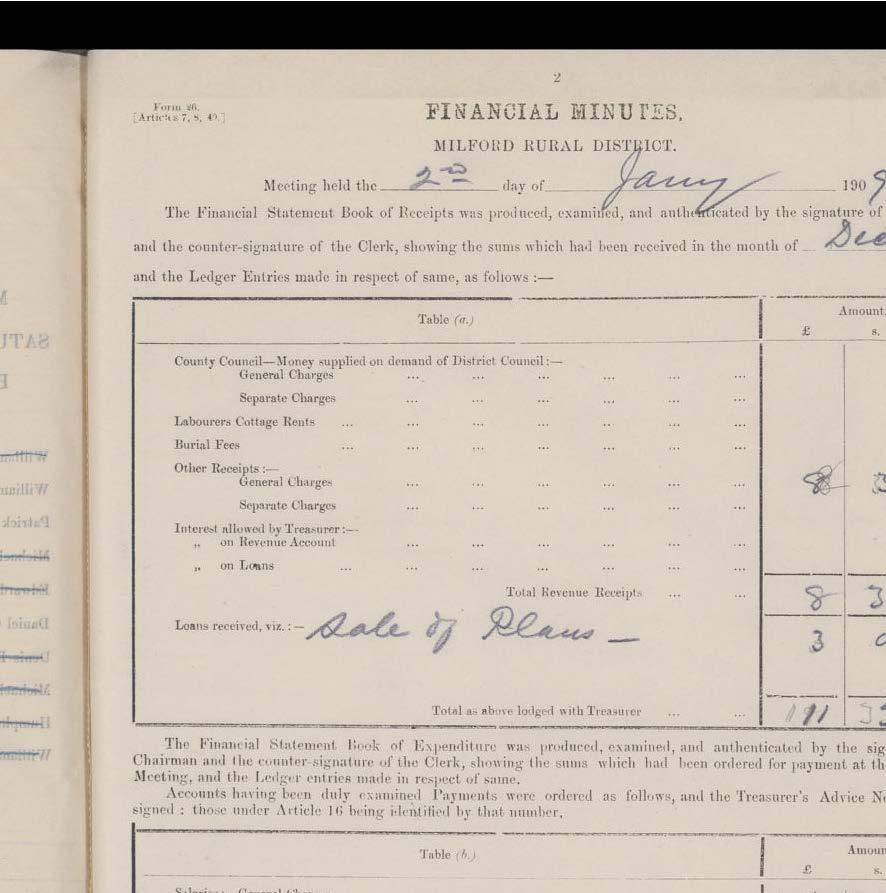 2
Form 26.
[Articles 7, 8, 49.]
FINANCIAL MINUTES.
MILFORD RURAL DISTRICT.
Meeting held the 2nd day of Jany 1909
The Financial Statement Book of Receipts was produced, examined, and authenticated by the signature of
and the counter-signature of the Clerk, showing the sums which had been received in the month of Dec
and the Ledger Entries made in respect of same, as follows :—
Table (a.) Amount.
£ s.
County Council—Money supplied on demand of District Council :—
General Charges ... ... ... ... ... ...
Separate Charges ... ... ... ... ... ...
Labourers Cottage Rents ... ... ... ... ... ... ...
Burial Fees ... ... ... ... ... ... ...
Other Receipts :—
General Charges ... ... ... ... ... ... 8 3
Separate Charges ... ... ... ... ... ...
Interest allowed by Treasurer :—
„ on Revenue Account ... ... ... ... ... ...
„ on Loans ... ... ... ... ... ... ...
Total Revenue Receipts ... ... 8 3
Loans received, viz. :— Sale of Plans — 3
Total as above lodged with Treasurer ... ... 11
The Financial Statement Book of Expenditure was produced, examined, and authenticated by the sig
Chairman and the counter-signature of the Clerk, showing the sums which had been ordered for payment at th
Meeting, and the Ledger entries made in respect of same.
Accounts having been duly examined Payments were ordered as follows, and the Treasurer's Advice No
signed : those under Article 16 being identified by that number,
Table (b.) Amoun
£ s.
SATU
William
William
Patrick
Michael
Edward
Daniel
Denis
Michael
William